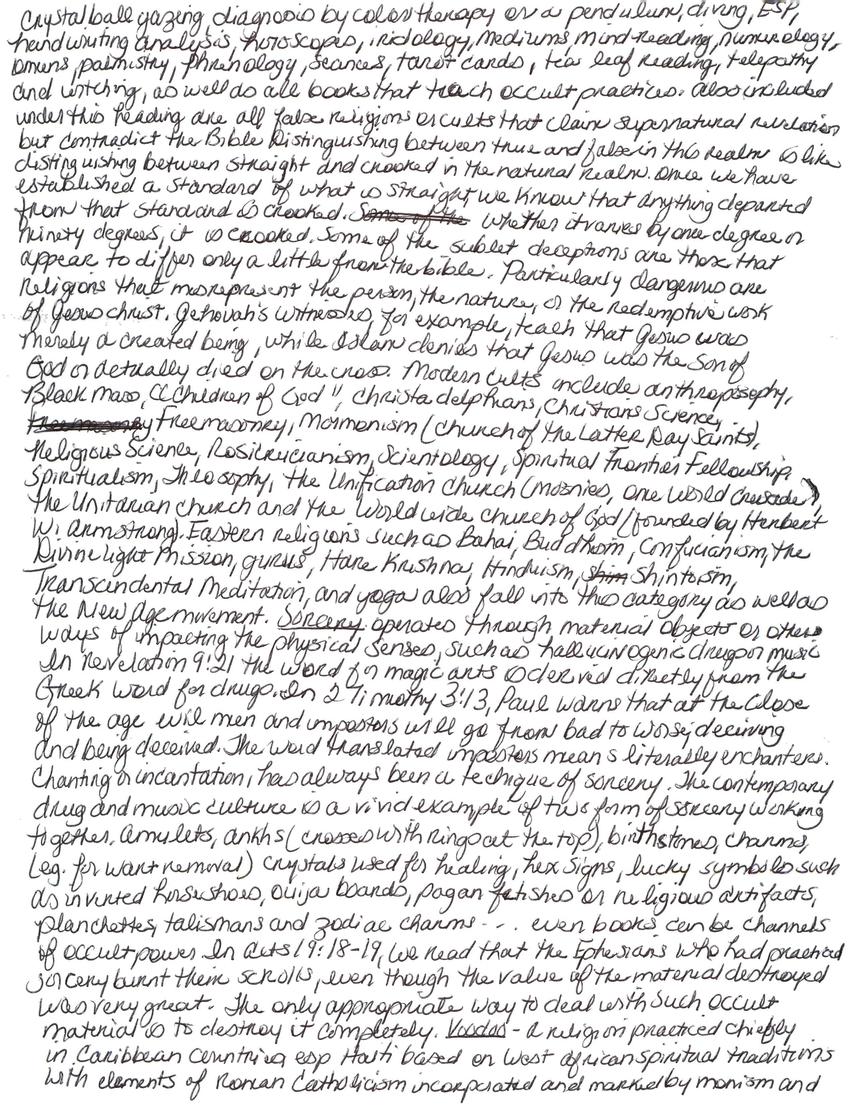 Crystal ball gazing, diagnosis by color therapy or a pendulum, diving, ESP,
handwriting analysis, horoscopes, iridology, mediums, mind-reading, numerology,
omens, palmistry, phrenology, seances, tarot cards, tea leaf reading, telepathy
and witching, as well as all books that teach occult practices. Also included
under this heading are all false religions or cults that claim supernatural revelation
but contradict the Bible. Distinguishing between true and false in this realm is like
distinguishing between straight and crooked in the natural realm. Once we have
established a standard of what is straight, we know that anything departed
from that standard is crooked. Some of the whether it varies by one degree or
ninety degrees, it is crooked. Some of the sublet deceptions are those that
appear to differ only a little from the bible. Particularly dangerous are
religions that misrepresent the person, the nature, or the redemptive work
of Jesus christ. Jehovah's witnesses, for example, teach that Jesus was
merely a created being, while Islam denies that Jesus was the Son of
God or actually died on the cross. Modern cults include anthroposophy,
Black mass, "Children of God", Christadelphians, Christians Science,
Freemasonry, Mormonism (Church of the Latter Day Saints),
Religious Science, Rosicrucianism, Scientology, Spiritual Frontier Fellowship,
Spiritualism, Theosophy, the Unification Church (Moonies, One World Crusade),
the Unitarian church and the Worldwide church of God (founded by Herbert
W. Armstrong). Eastern religions such as Bahai, Buddhism, Confucianism, the
Divine light Mission, gurus, Hare Krishna, Hinduism, Shin Shintoism,
Transcendental Meditation, and yoga also fall into this category as well as
the New Age movement. Sorcery operates through material objects or others
ways of impacting the physical senses, such as hallucinogenic drugs or music
In Revelation 9:21 the word for magic arts is derived directly from the
Greek word for drugs. In 2 Timothy 3:13, Paul warns that at the Close
of the age evil men and impostors will go from bad to worse, deceiving
and being deceived. The word translated impostors means literally enchanters.
Chanting or incantation, has always been a technique of sorcery. The contemporary
drug and music culture is a vivid example of two form of sorcery working
together. Amulets, ankhs (crosses with rings at the top), birthstones, charms,
(eg. for want removal) crystals used for healing, hex signs, lucky symbols such
as inverted horseshoes, ouija boards, pagan fetishes or religious artifacts,
planchettes, talismans and zodiac charms --. even books can be channels
of occult power. In Acts 19:18-19, we read that the Ephesians who had practiced
sorcery burnt their scrolls, even though the value of the material destroyed
was very great. The only appropriate way to deal with such occult
material is to destroy it completely. Voodoo - a religion practiced chiefly
in Caribbean countries esp Haiti based on West african spiritual traditions
with elements of Roman Catholicism incorporated and marked by monism and